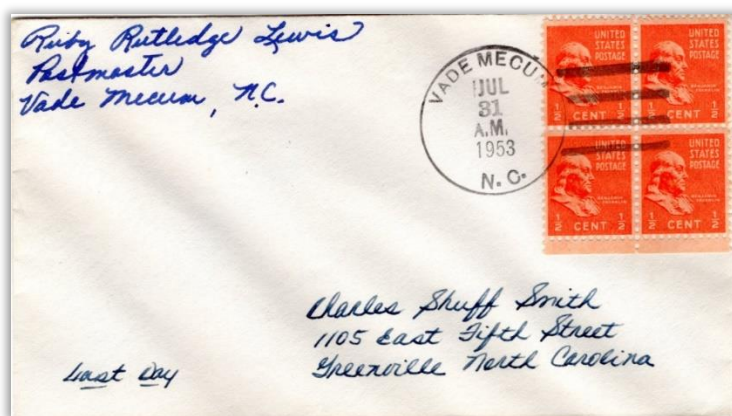 Ruby Rutledge Lewis
Postmaster
Vade Mecum, N.C.
VADE MECUM
JUL
31
A.M.
1953
N. C.
UNITED
STATES
POSTAGE
BENJAMIN
FRANKLIN
½ CENT ½
UNITED
STATES
POSTAGE
BENJAMIN
FRANKLIN
½ CENT ½
UNITED
STATES
POSTAGE
BENJAMIN
FRANKLIN
½ CENT ½
UNITED
STATES
POSTAGE
BENJAMIN
FRANKLIN
½ CENT ½
Charles Shuff Smith
1105 East Fifth Street
Greenville North Carolina
Last Day